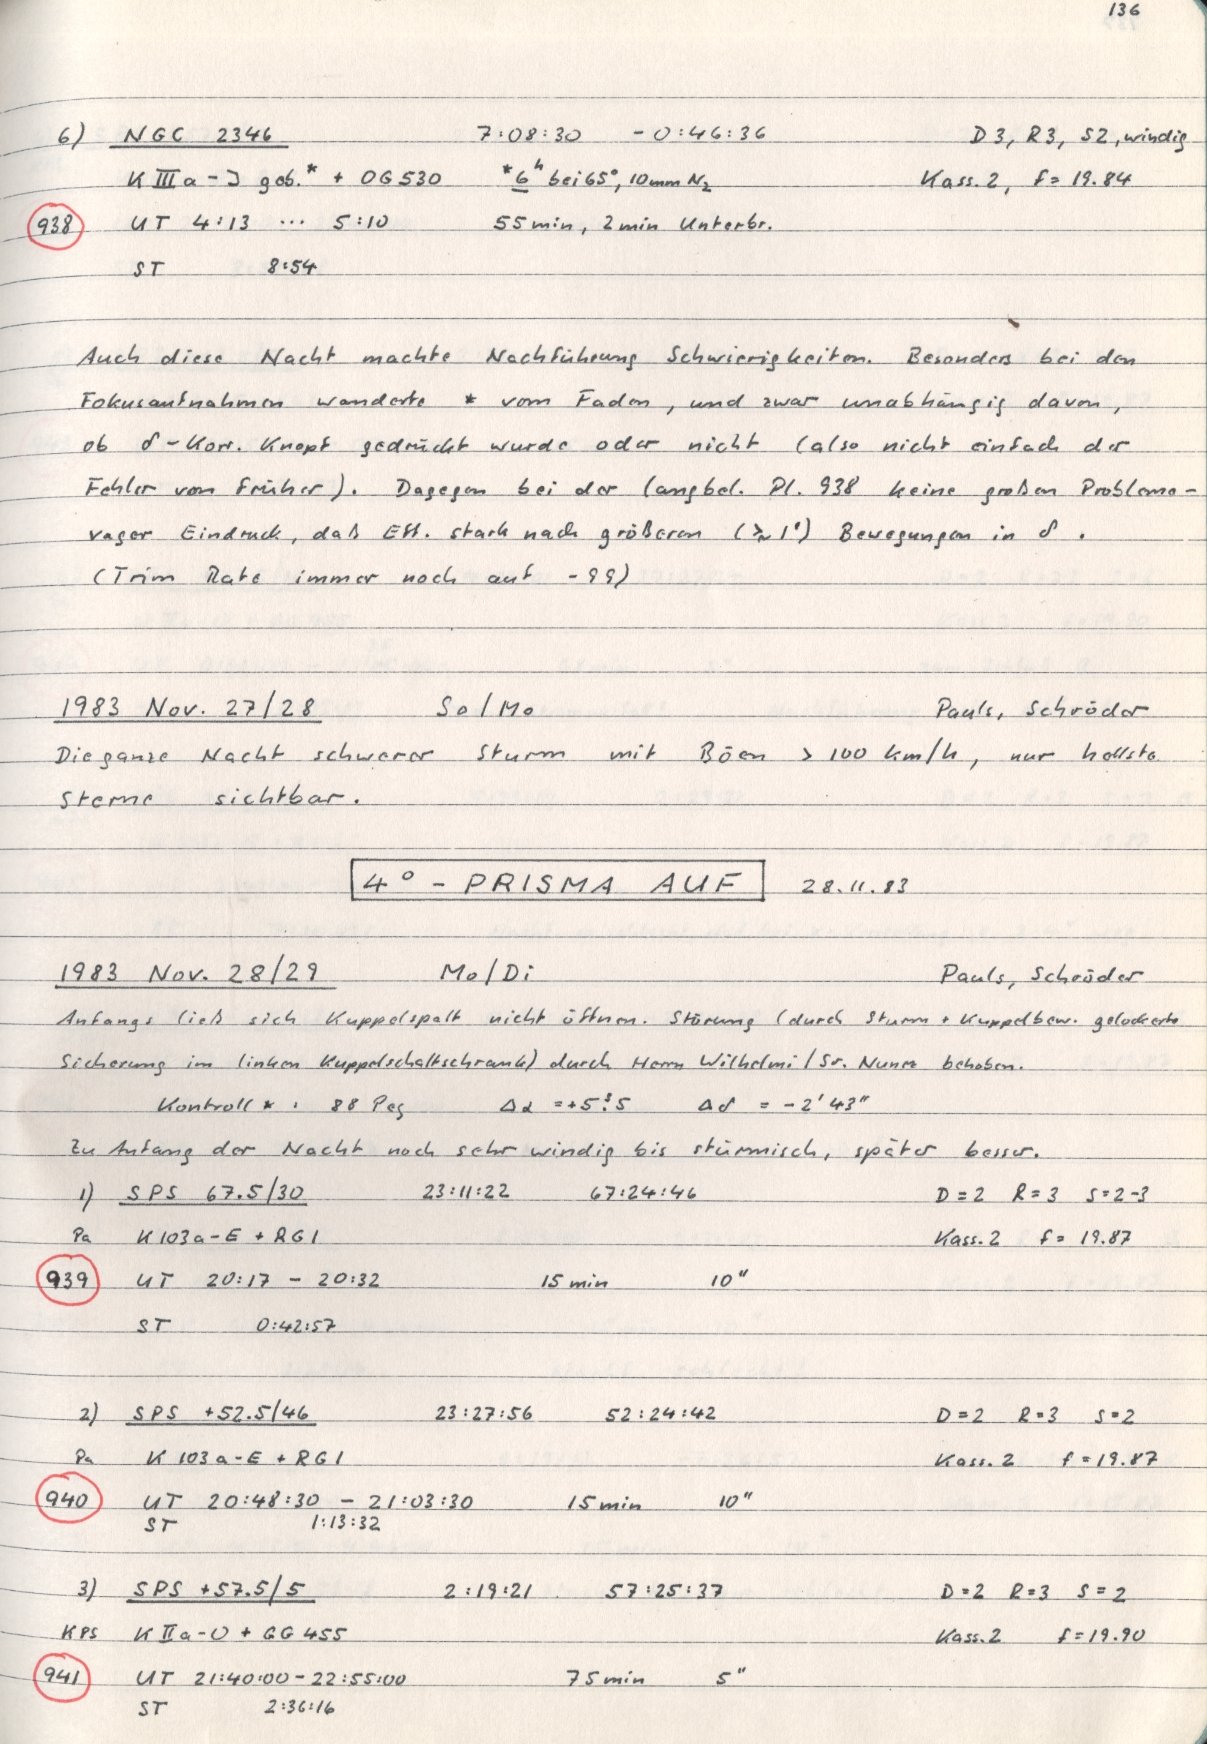 136
6) NGC 2346 7:08:30 -0:46:36 D3, R3, S2, windig
K IIIa-J geb.* + OG530 *6ʰ bei 65°, 10mm N₂ Kass. 2, f= 19.84
938 UT 4:13 ... 5:10 55min, 2min Unterbr.
ST 8:54
Auch diese Nacht machte Nachführung Schwierigkeiten. Besonders bei den
Fokusaufnahmen wanderte * vom Faden, und zwar unabhängig davon,
ob δ-Korr. Knopf gedrückt wurde oder nicht (also nicht einfach der
Fehler von früher). Dagegen bei der langbel. Pl. 938 keine großen Probleme-
vager Eindruck, daß Eff. stark nach größeren (≳1°) Bewegungen in δ.
(Trim Rate immer noch auf -99)
1983 Nov. 27/28 So/Mo Pauls, Schröder
Die ganze Nacht schwerer Sturm mit Böen > 100 km/h, nur hellste
Sterne sichtbar.
4° - PRISMA AUF 28.11.83
1983 Nov. 28/29 Mo/Di Pauls, Schröder
Anfangs ließ sich Kuppelspalt nicht öffnen. Störung (durch Sturm + Kuppelbew. gelockerte
Sicherung im linken Kuppelschaltschrank) durch Herrn Wilhelmi/Sr. Nunez behoben.
Kontroll*: 88 Peg Δα =+5ˢ.5 Δδ = -2'43"
Zu Anfang der Nacht noch sehr windig bis stürmisch, später besser.
1) SPS 67.5/30 23:11:22 67:24:46 D=2 R=3 S=2-3
Pa K 103a-E + RG1 Kass. 2 f= 19.87
939 UT 20:17 - 20:32 15min 10"
ST 0:42:57
2) SPS +52.5/46 23:27:56 52:24:42 D=2 R=3 S=2
Pa K 103a-E + RG1 Kass. 2 f=19.87
940 UT 20:48:30 - 21:03:30 15min 10"
ST 1:13:32
3) SPS +57.5/5 2:19:21 57:25:37 D=2 R=3 S=2
KPS K IIa-O + GG 455 Kass. 2 f=19.90
941 UT 21:40:00-22:55:00 75min 5"
ST 2:36:16